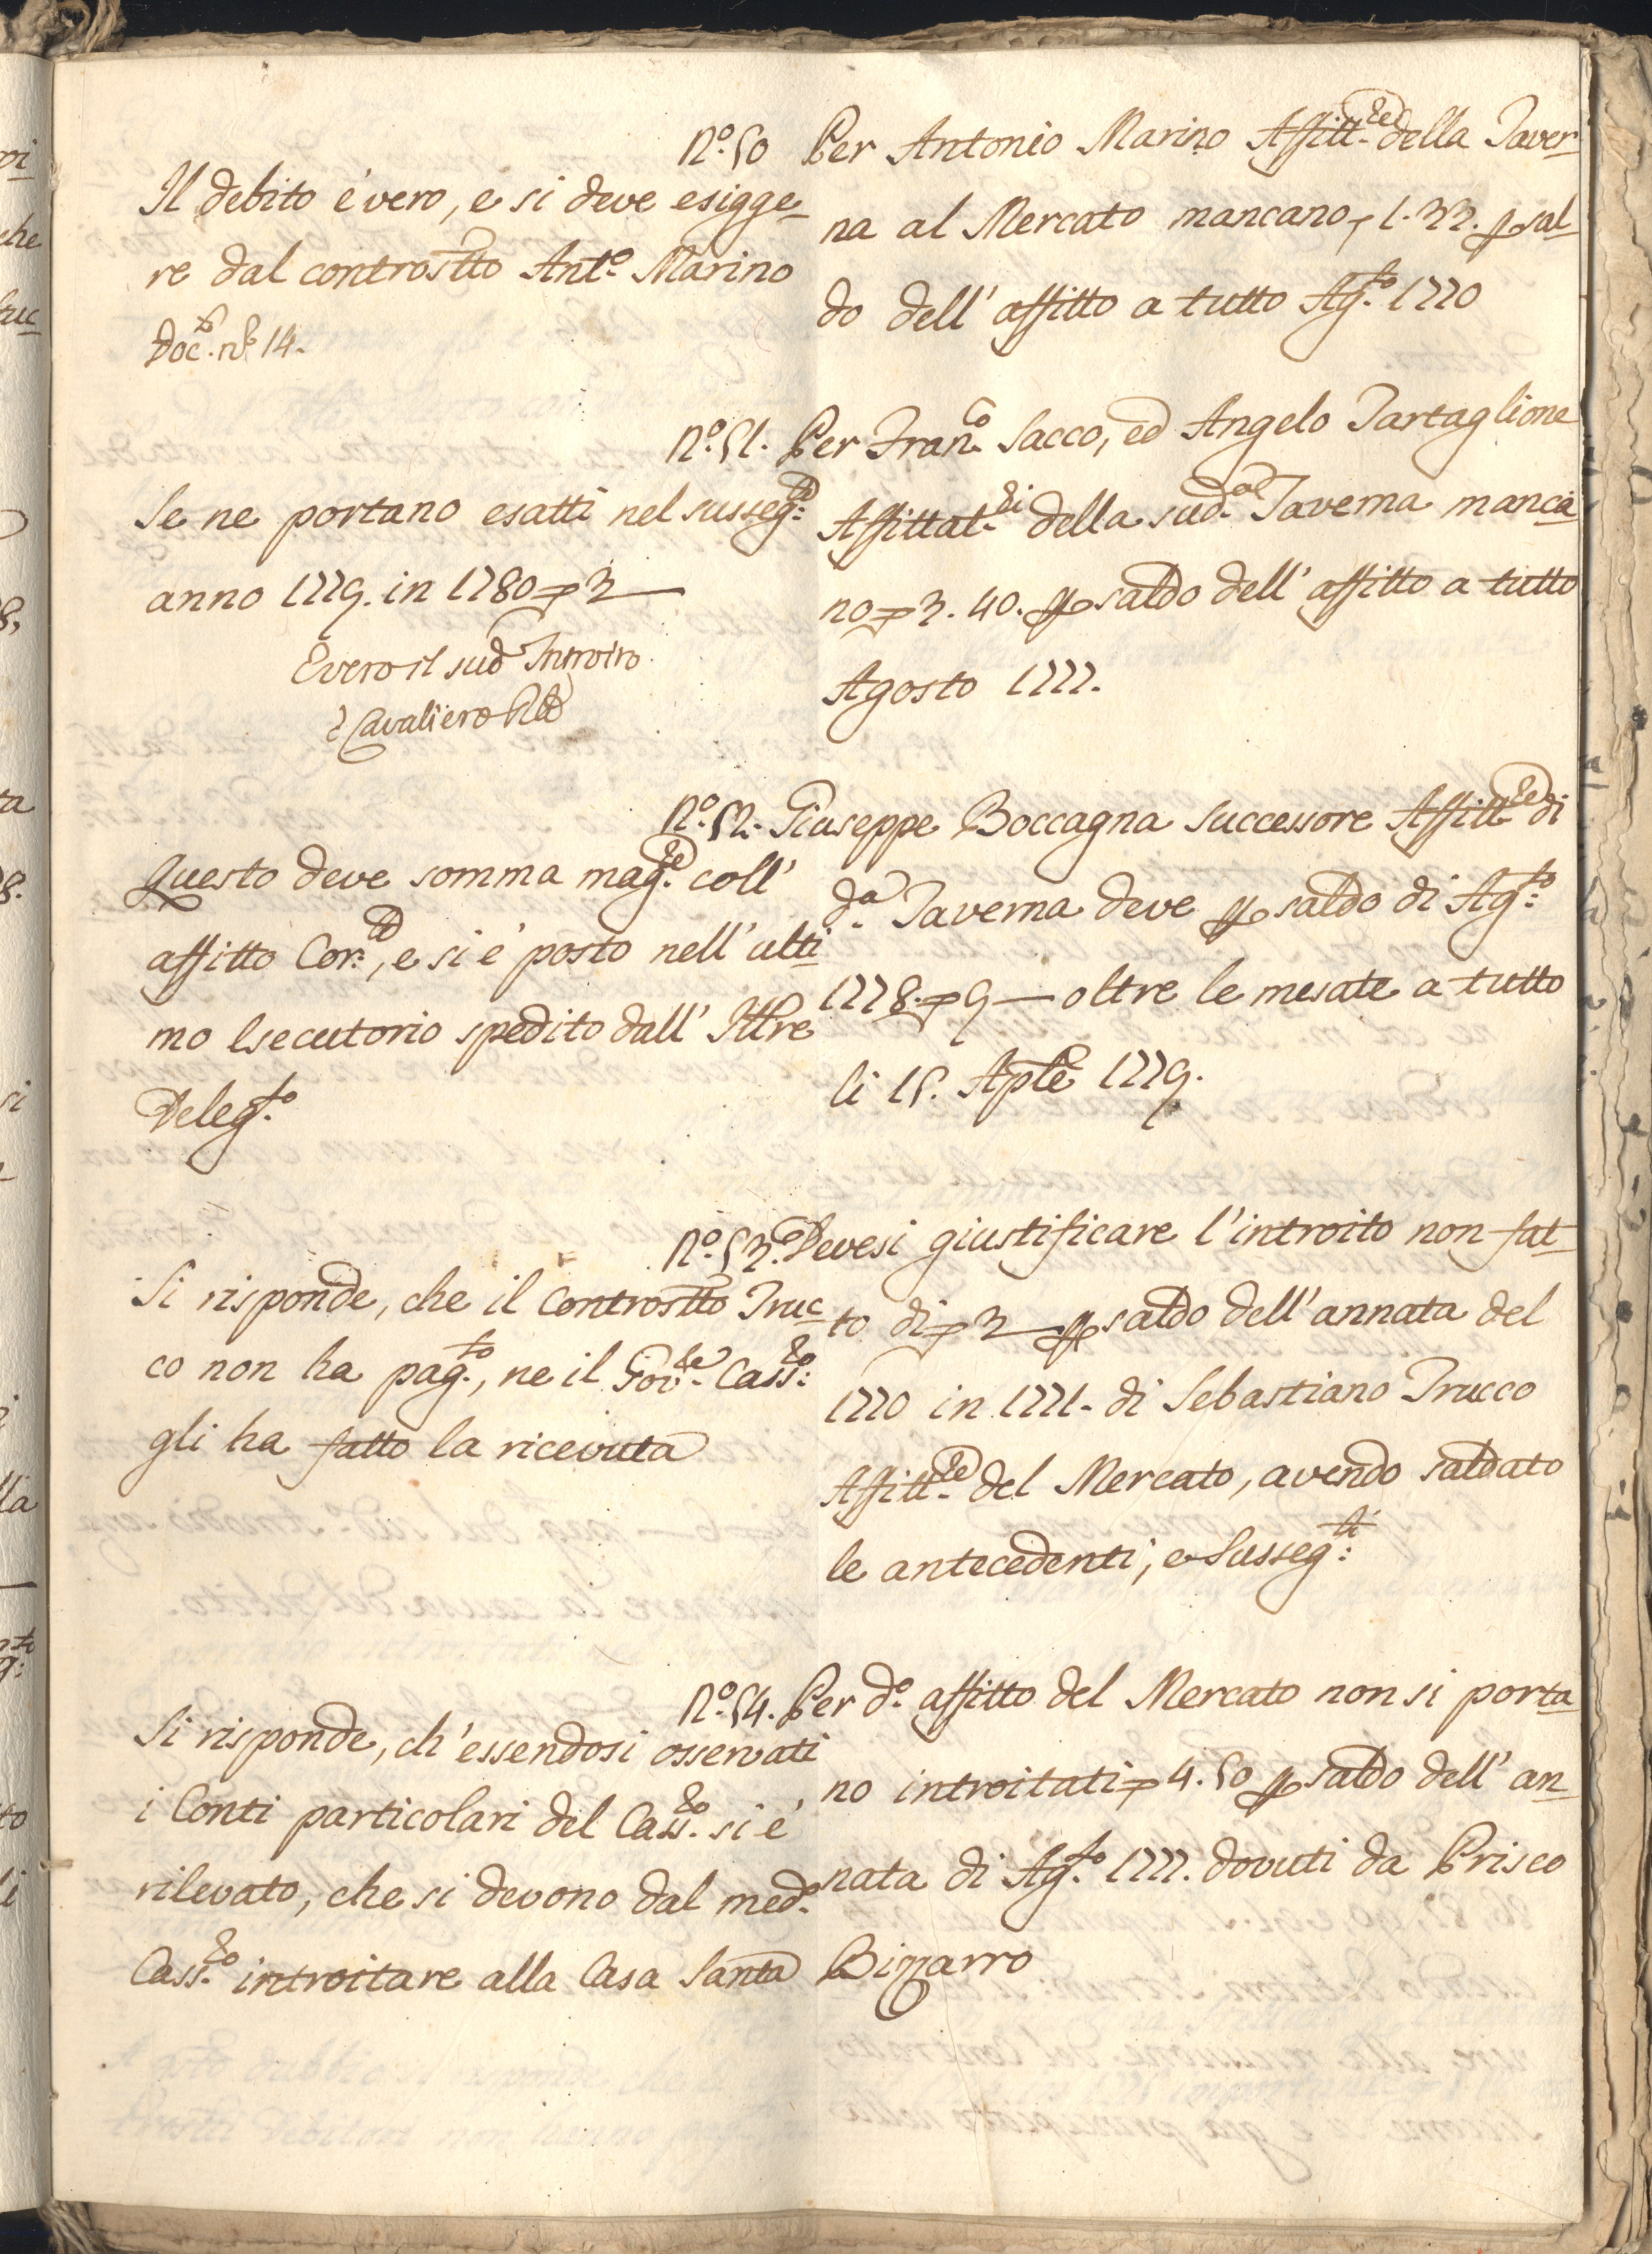 N.º 50 Per Antonio Marino Affitt.re della Taver-
na al Mercato mancano 1.33. per sal-
do dell' affitto a tutto Ag.to 1770
Il debito è vero, e si deve esigge-
re dal controstto Ant.o Marino
Doc.to n.o 14.
N.º 51. Per Fran.co Sacco, ed Angelo Tartaglione
Affittat.ri della sud.a Taverna manca-
no 3.40. per saldo dell' affitto a tutto
Agosto 1777.
Se ne portano esatti nel susseg.te
anno 1779. in 1780 3 —
È vero il sud.o Introito
Cavaliero
N.º 52. Giuseppe Boccagna successore Affitt.re di
d.a Taverna deve per saldo di Ag.to
1778. 9 — oltre le mesate a tutto
li 15. Aple 1779.
Questo deve somma mag.re coll'
affitto Cor.te, e si è posto nell' ulti-
mo Esecutorio spedito dall' Illre
Deleg.to
N.º 53. Devesi giustificare l'introito non fat-
to di 3 — per saldo dell' annata del
1770 in 1771. di Sebastiano Trucco
Affitt.re del Mercato, avendo saldato
le antecedenti, e susseg.ti
Si risponde, che il controstto Truc-
co non ha pag.to, ne il Gov.re Cass.ro
gli ha fatto la ricevuta
N.º 54. Per d.o affitto del Mercato non si porta-
no introitati 4.50 per saldo dell' an-
nata di Ag.to 1777. dovuti da Prisco
Bizzarro
Si risponde, ch' essendosi osservati
i Conti particolari del Cass.ro si è
rilevato, che si devono dal med.o
Cass.ro introitare alla Casa Santa